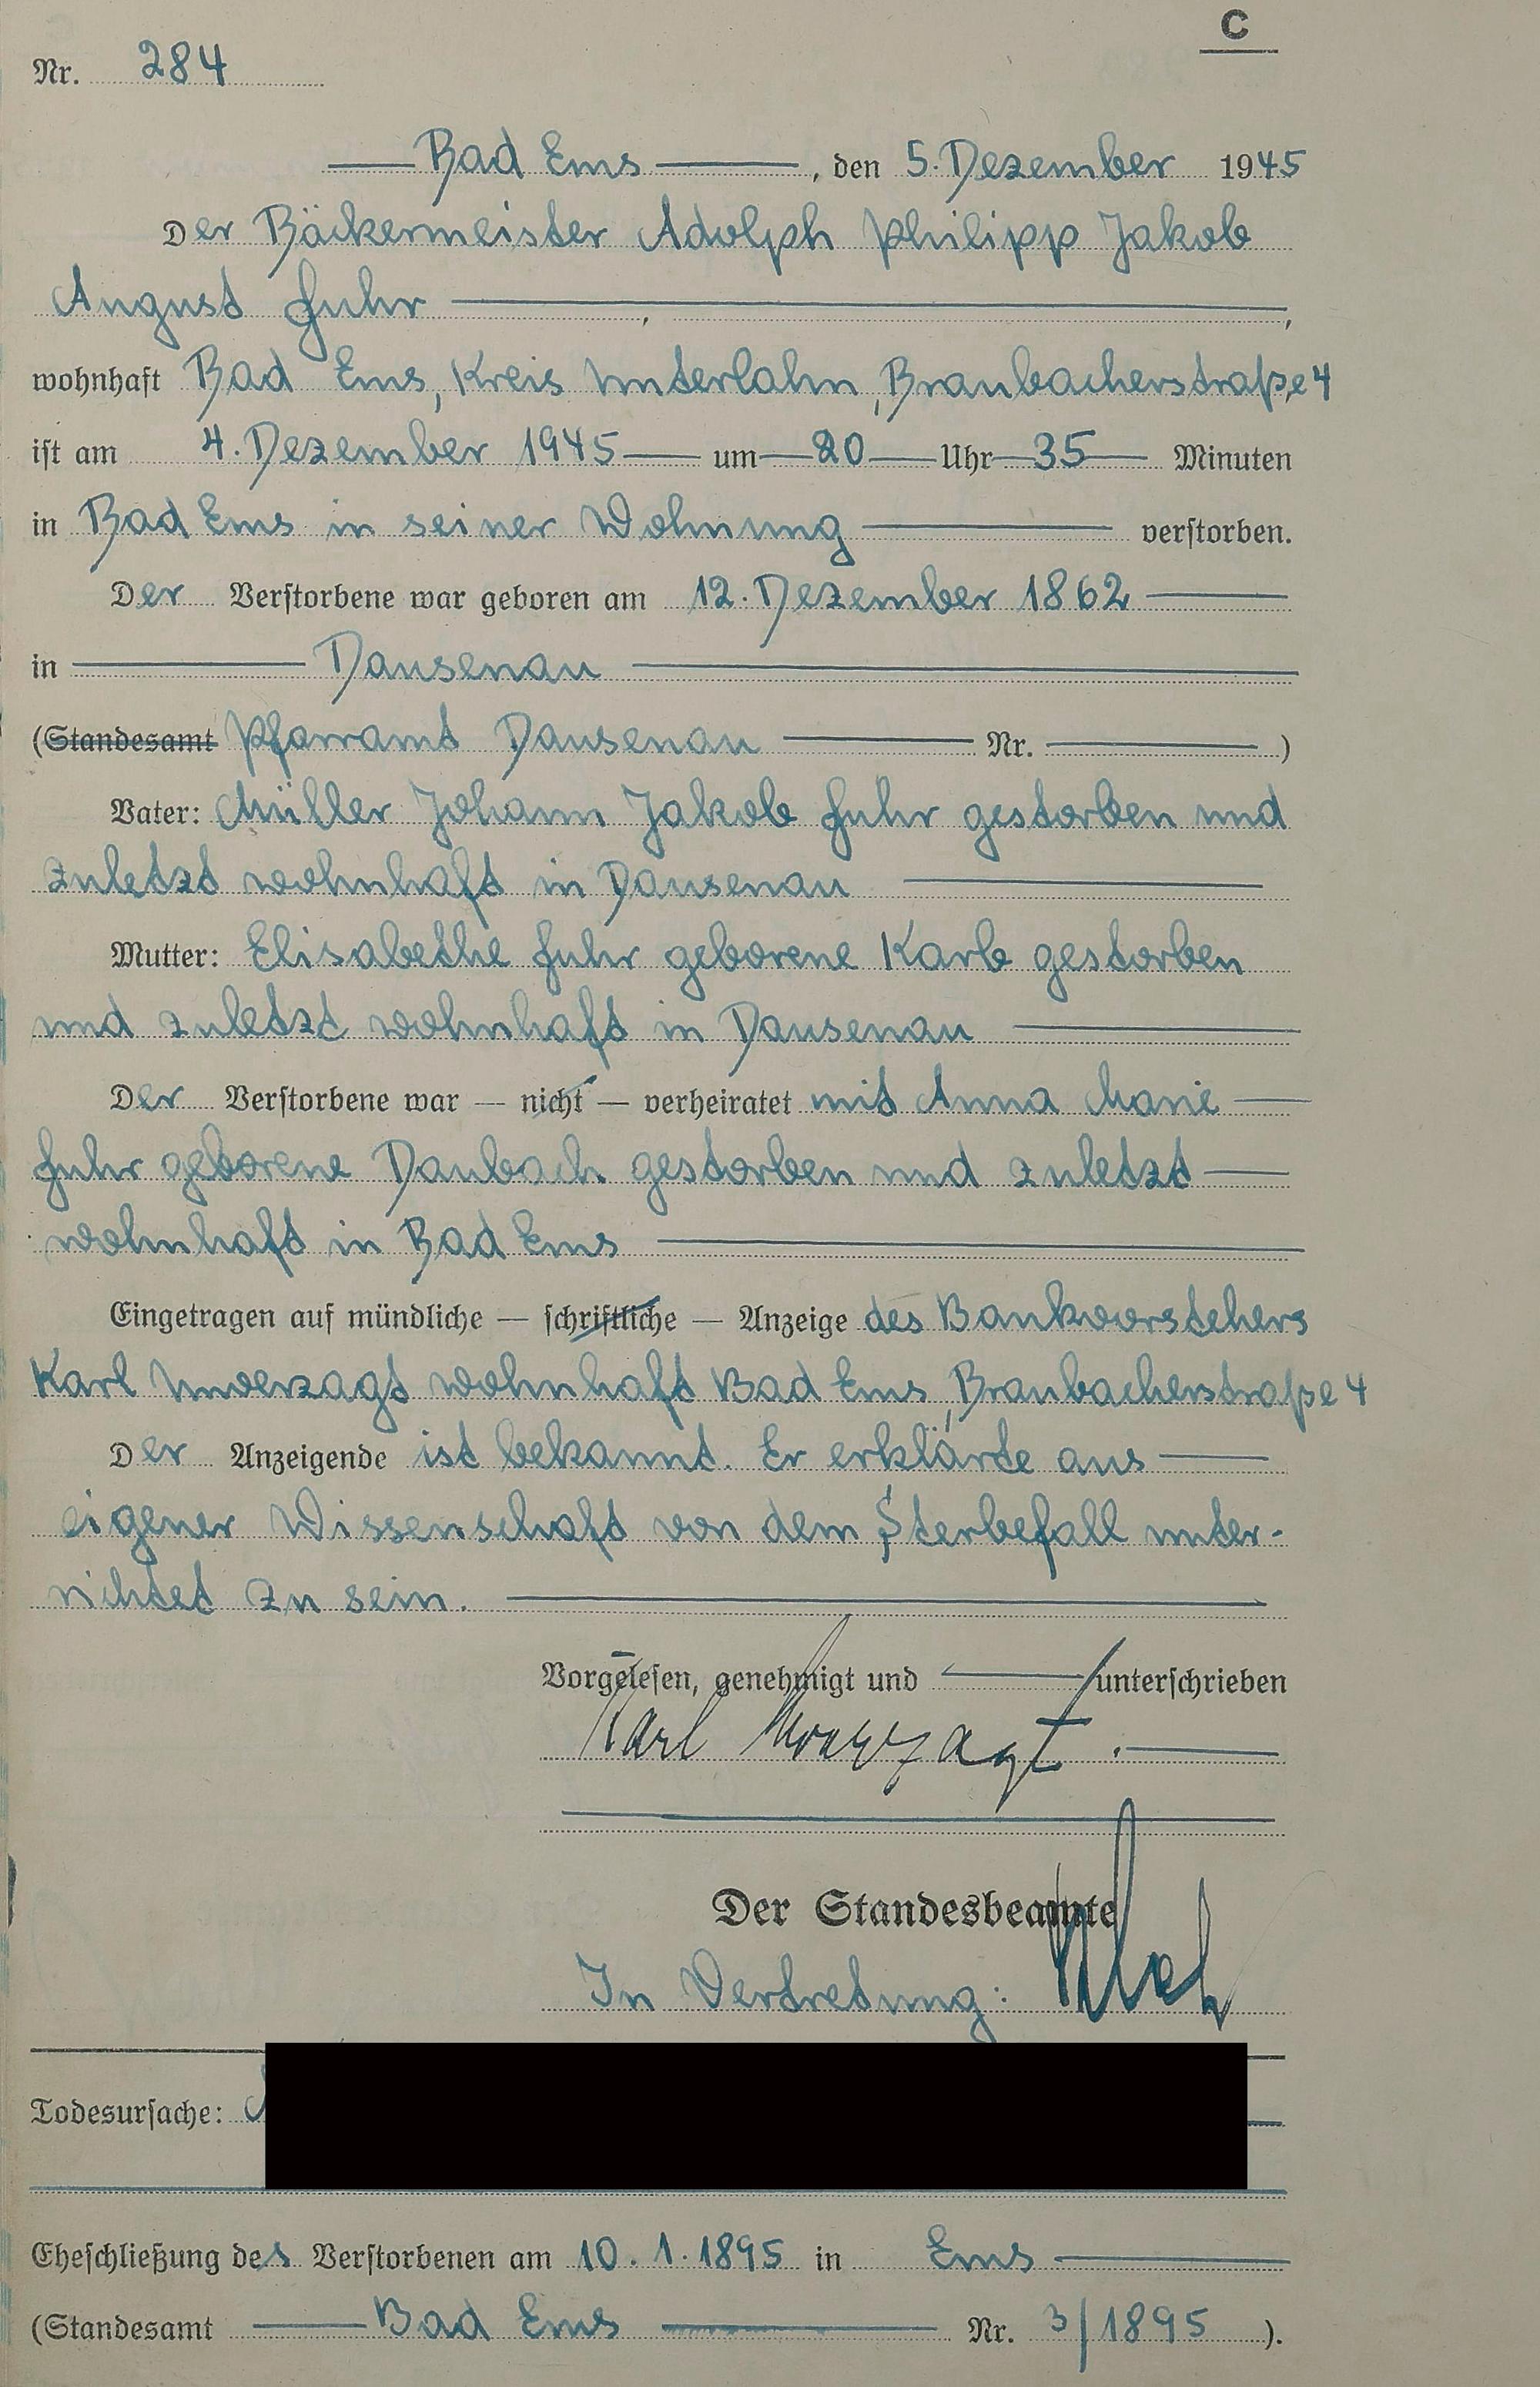 C
Nr. 284
Bad Ems, den 5. Dezember 1945
Der Bäckermeister Adolph Philipp Jakob
August Fuhr , ,
wohnhaft Bad Ems, Kreis Unterlahn, Braubacherstraße 4
ist am 4. Dezember 1945 um 20 Uhr 35 Minuten
in Bad Ems in seiner Wohnung verstorben.
Der Verstorbene war geboren am 12. Dezember 1862
in Dausenau
(Standesamt Pfarramt Dausenau Nr. )
Vater: Müller Johann Jakob Fuhr gestorben und
zuletzt wohnhaft in Dausenau
Mutter: Elisabethe Fuhr geborene Karb gestorben
und zuletzt wohnhaft in Dausenau
Der Verstorbene war — nicht — verheiratet mit Anna Marie
Fuhr geborene Daubach gestorben und zuletzt
wohnhaft in Bad Ems
Eingetragen auf mündliche — schriftliche — Anzeige des Bankvorstehers
Karl Unverzagt wohnhaft Bad Ems, Braubacherstraße 4
Der Anzeigende ist bekannt. Er erklärte aus
eigener Wissenschaft von dem Sterbefall unter-
richtet zu sein.
Vorgelesen, genehmigt und unterschrieben
Karl Unverzagt.
Der Standesbeamte
In Vertretung:
Todesursache:
Eheschließung des Verstorbenen am 10. 1. 1895 in Ems
(Standesamt Bad Ems Nr. 3/1895 ).